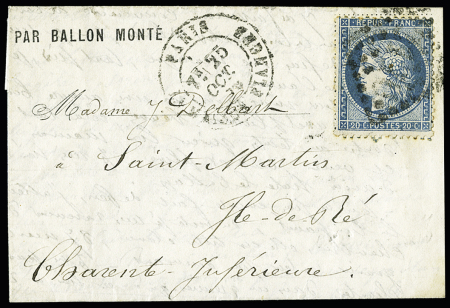 PAR BALLON MONTÉ
PARIS
25
OCT.
REPUB. FRANC.
20 C POSTES 20 C
Madame J.
à Saint-Martin
Ile-de-Ré
Charente-Inférieure.